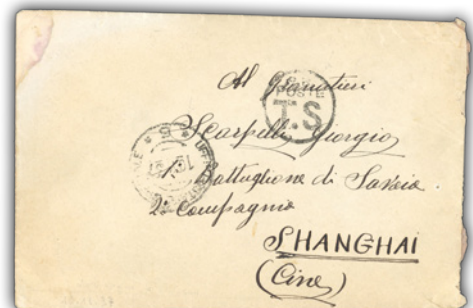 Al Granatieri
POSTE
T.S
Scarpelli Giorgio
Battaglione di Savoia
2ª Compagnia
SHANGHAI
(Cine)